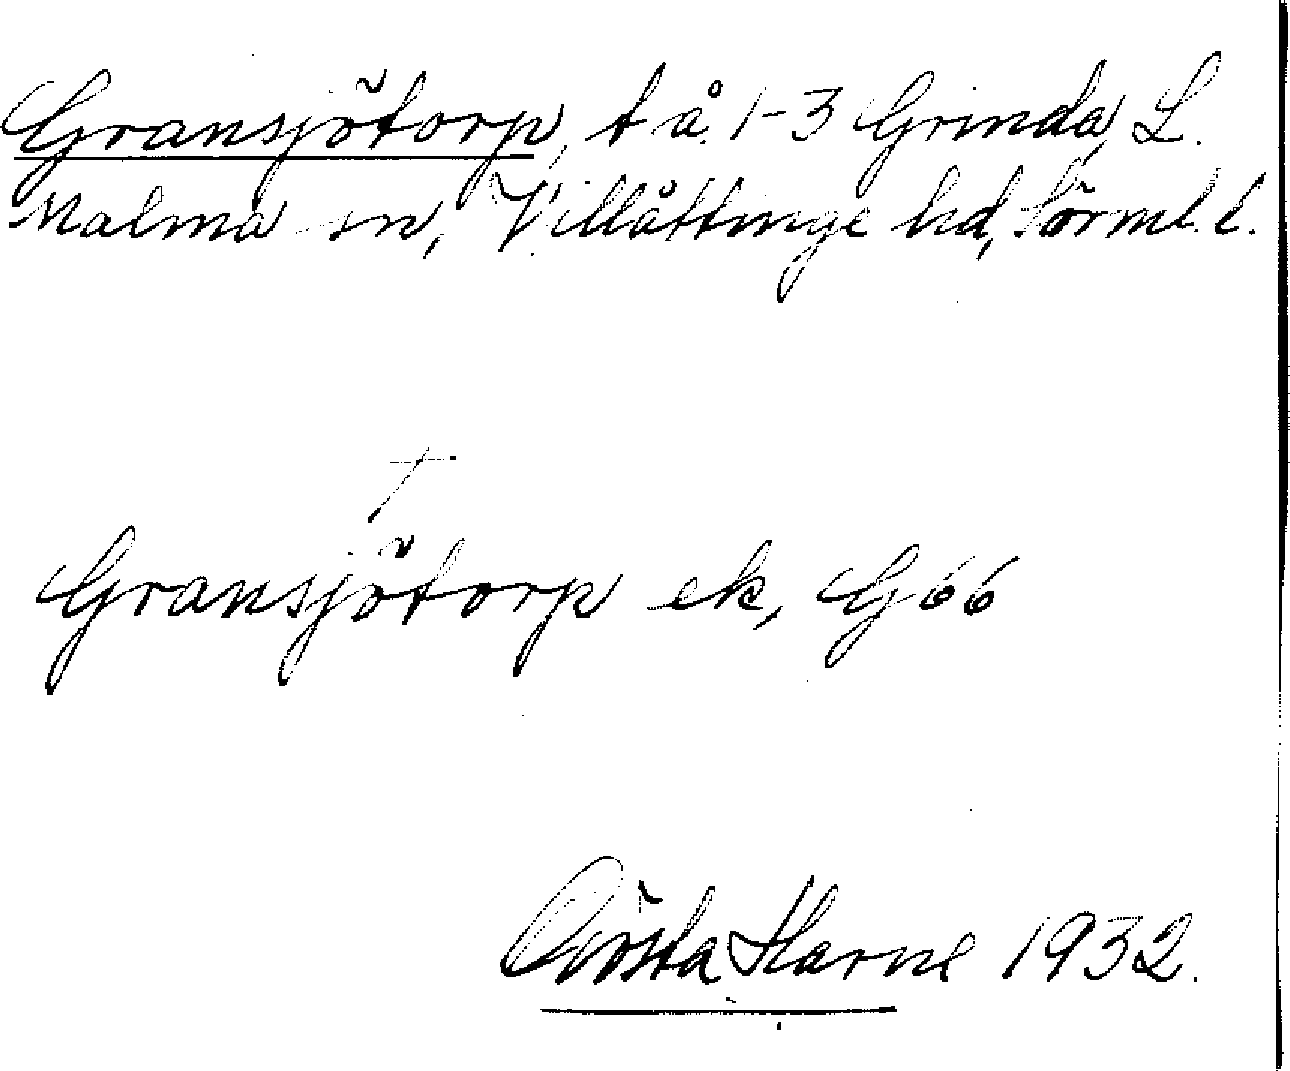 Gransjötorp, t å. 1-3 Grinda, L.
Malma sn, Villåttinge hd, Sörml. l.
†
Gransjötorp ek, G 66
Gösta Harne 1932.